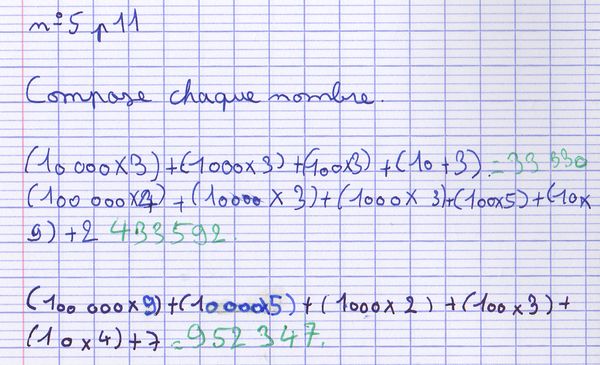 n°5 p11
Compose chaque nombre.
(10 000x3)+(1000x3)+(100x3)+(10+3)=33 330
(100 000x4)+(10000x3)+(1000x3)+(100x5)+(10x
9)+2 433592.
(100 000x9)+(10000x5)+(1000x2)+(100x3)+
(10x4)+7=952347.